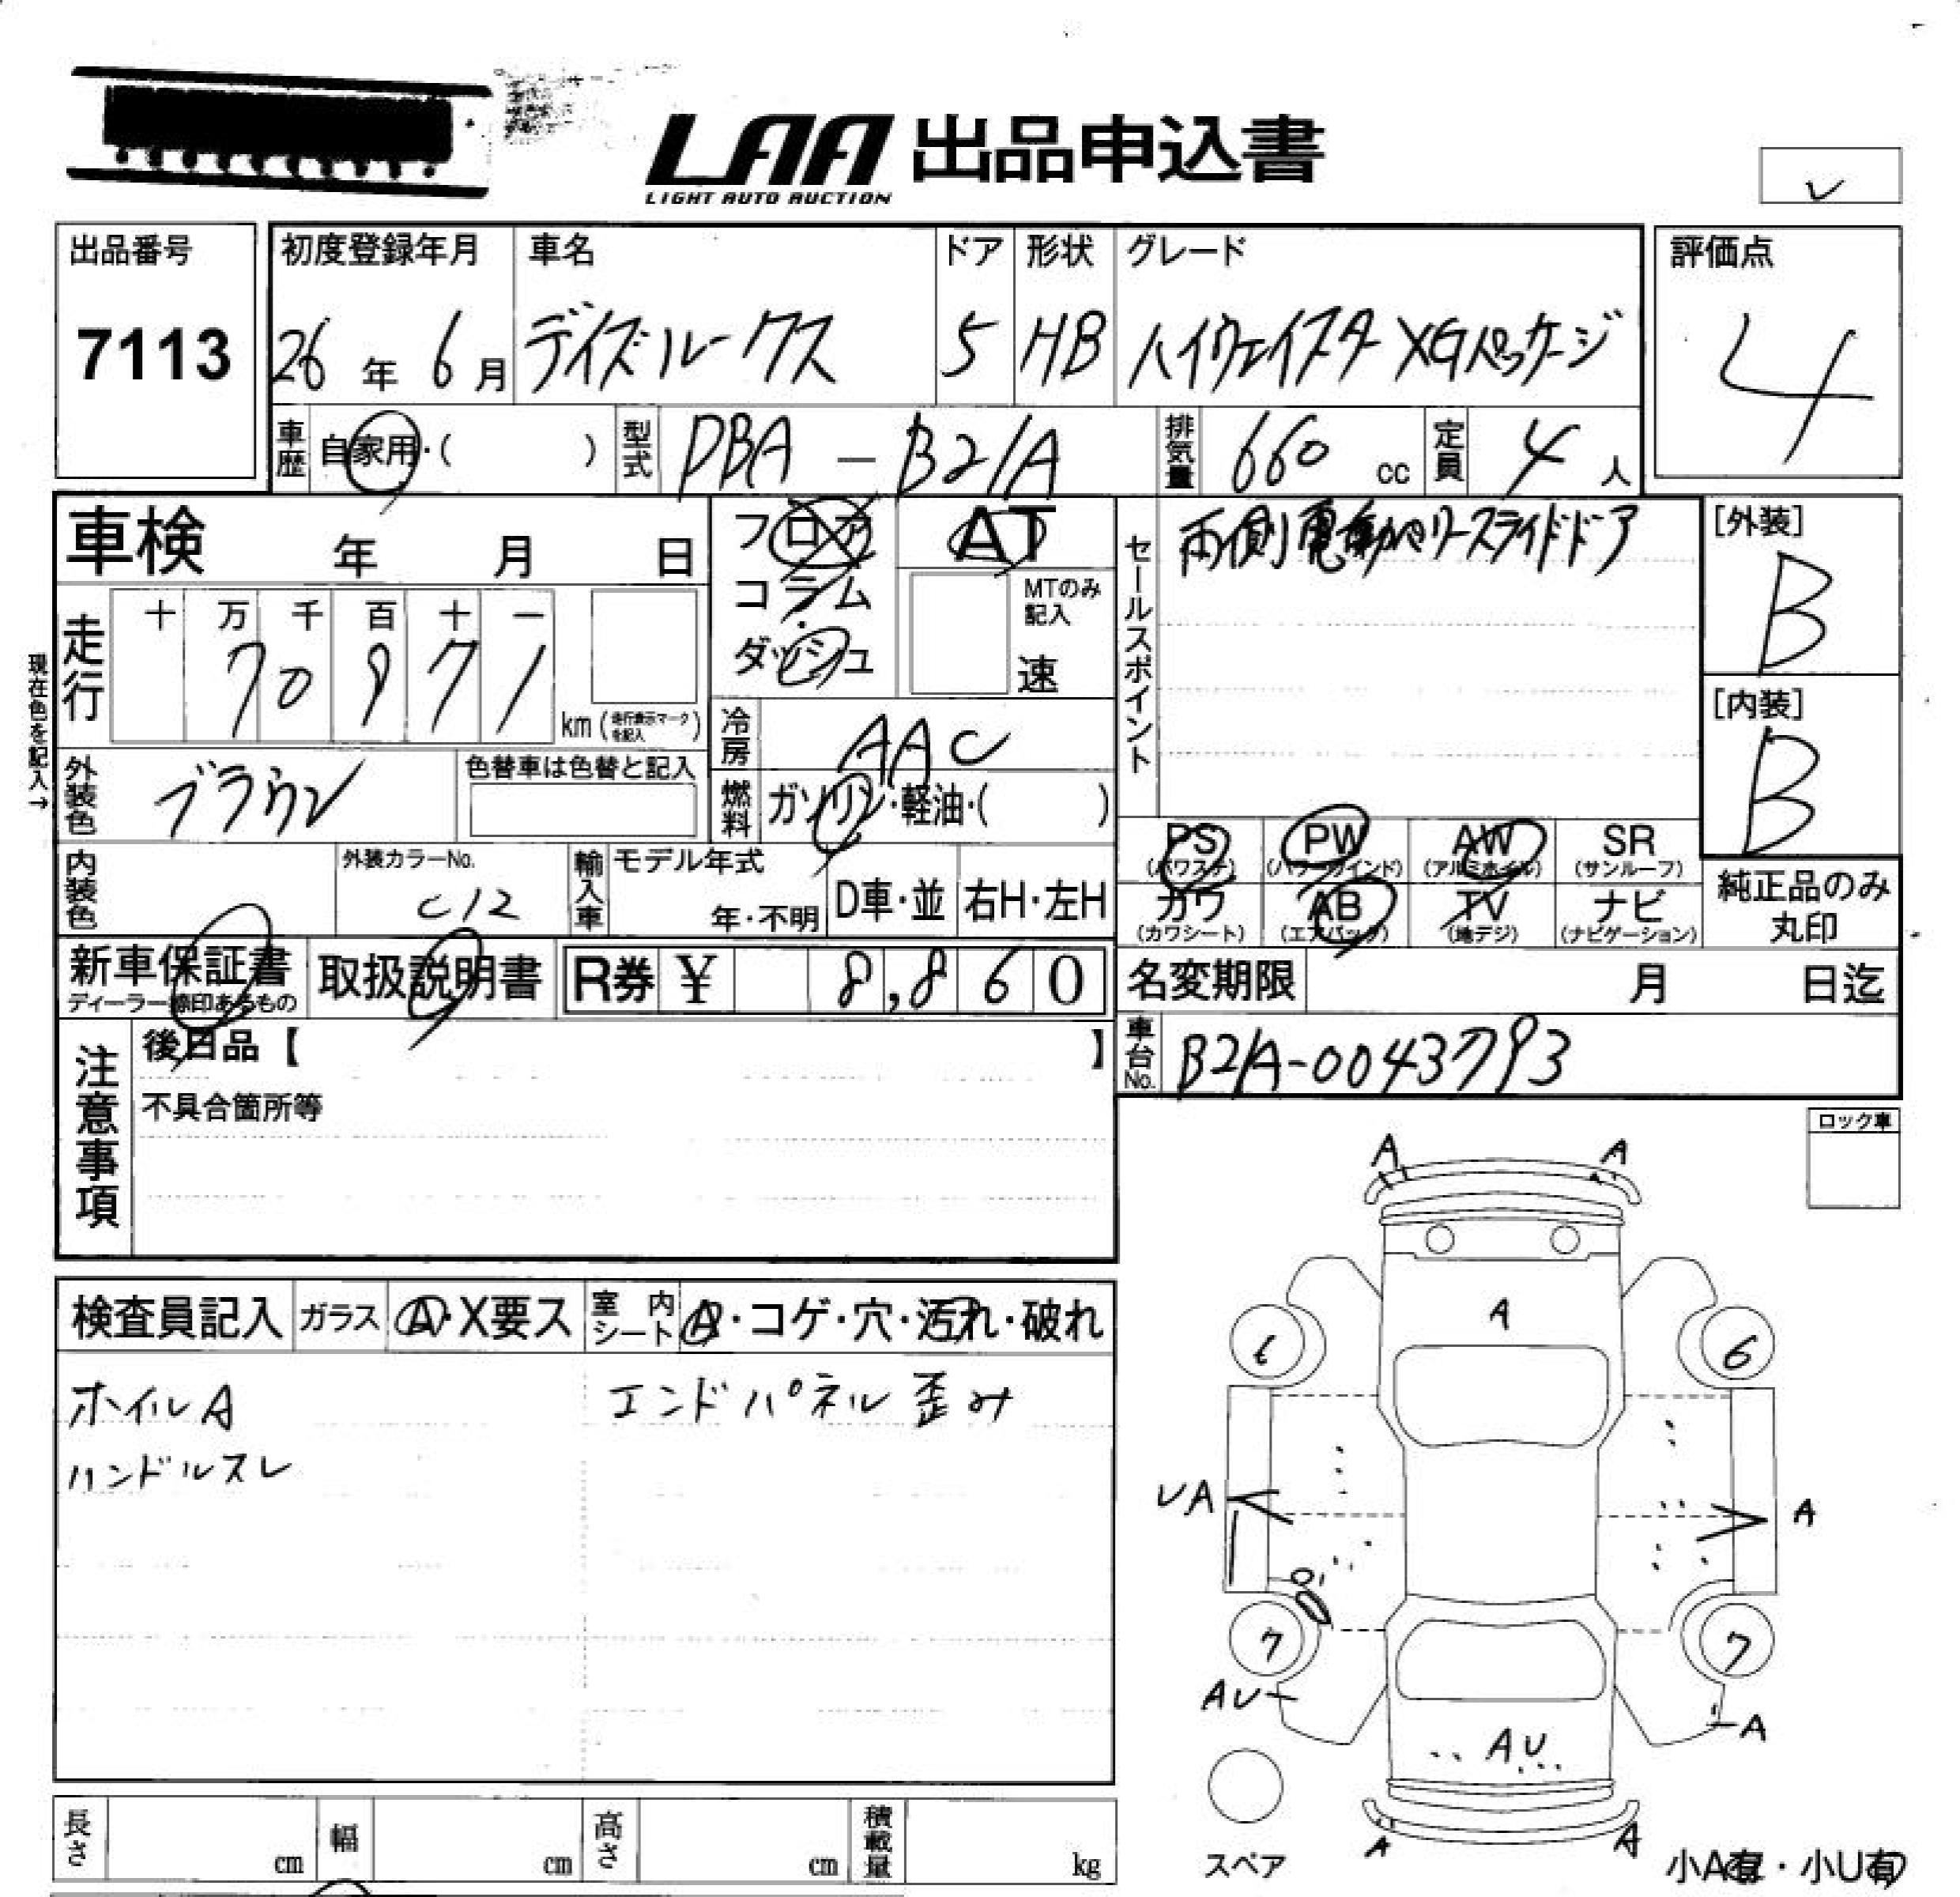 LAA 出品申込書
LIGHT AUTO AUCTION
レ
出品番号
7113
初度登録年月
26年 6月
車名
デイズルークス
ドア
5
形状
HB
グレード
ハイウェイスター XGパッケージ
評価点
4
車歴 自家用・( )
型式 DBA - B21A
排気量 660 cc
定員 4 人
車検 年 月 日
フロア
コラム
ダッシュ
AT
MTのみ記入
速
セールスポイント
両側電動パワースライドドア
[外装]
B
[内装]
B
現在色を記入→
走行
十 万 千 百 十 一
7 0 8 7 1
km (走行表示マークを記入)
冷房 AAC
燃料 ガソリン・軽油・( )
外装色 ブラウン
色替車は色替と記入
内装色
外装カラーNo.
C12
輸入車
モデル年式
年・不明
D車・並
右H・左H
PS (パワステ)
PW (パワーウインド)
AW (アルミホイル)
SR (サンルーフ)
カワ (カワシート)
AB (エアバック)
TV (地デジ)
ナビ (ナビゲーション)
純正品のみ丸印
新車保証書
ディーラー捺印あるもの
取扱説明書
R券 ¥ 8,860
名変期限 月 日迄
車台No. B21A-0043793
注意事項
後日品【 】
不具合箇所等
ロック車
検査員記入
ガラス A・X要ス
室内シート A・コゲ・穴・汚れ・破れ
ホイルA
エンドパネル歪み
ハンドルスレ
A A
A
6 6
UA A
7 7
AU A
AU
A A
スペア
小A有・小U有
長さ cm
幅 cm
高さ cm
積載量 kg